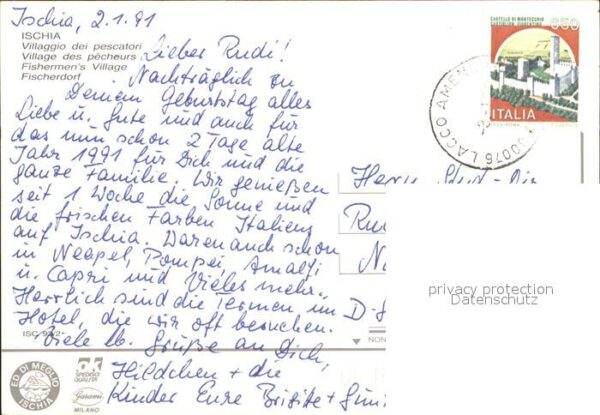 Ischia, 2.1.91
ISCHIA
Villaggio dei pescatori
Village des pêcheurs
Fishermen's Village
Fischerdorf
Lieber Rudi!
Nachträglich zu
Deinem Geburtstag alles
Liebe u. Gute und auch für
das nun schon 2 Tage alte
Jahr 1991 für Dich und die
ganze Familie. Wir genießen
seit 1 Woche die Sonne und
die frischen Farben Italiens
auf Ischia. Waren auch schon
in Neapel, Pompei, Amalfi
u. Capri und Vieles mehr.
Herrlich sind die Termen im
Hotel, die wir oft besuchen.
Viele lb. Grüße an Dich,
Hildchen + die
Kinder Eure Brigitte +
ISC
ED. DI MEGLIO
ISCHIA
ak
SPEDIZIONI
QUALITÀ
Garami
MILANO
NON
CASTELLO DI MONTECCHIO
CASTIGLION FIORENTINO
650
ITALIA
80076 LACCO AMEN
Herrn
D-
privacy protection
Datenschutz